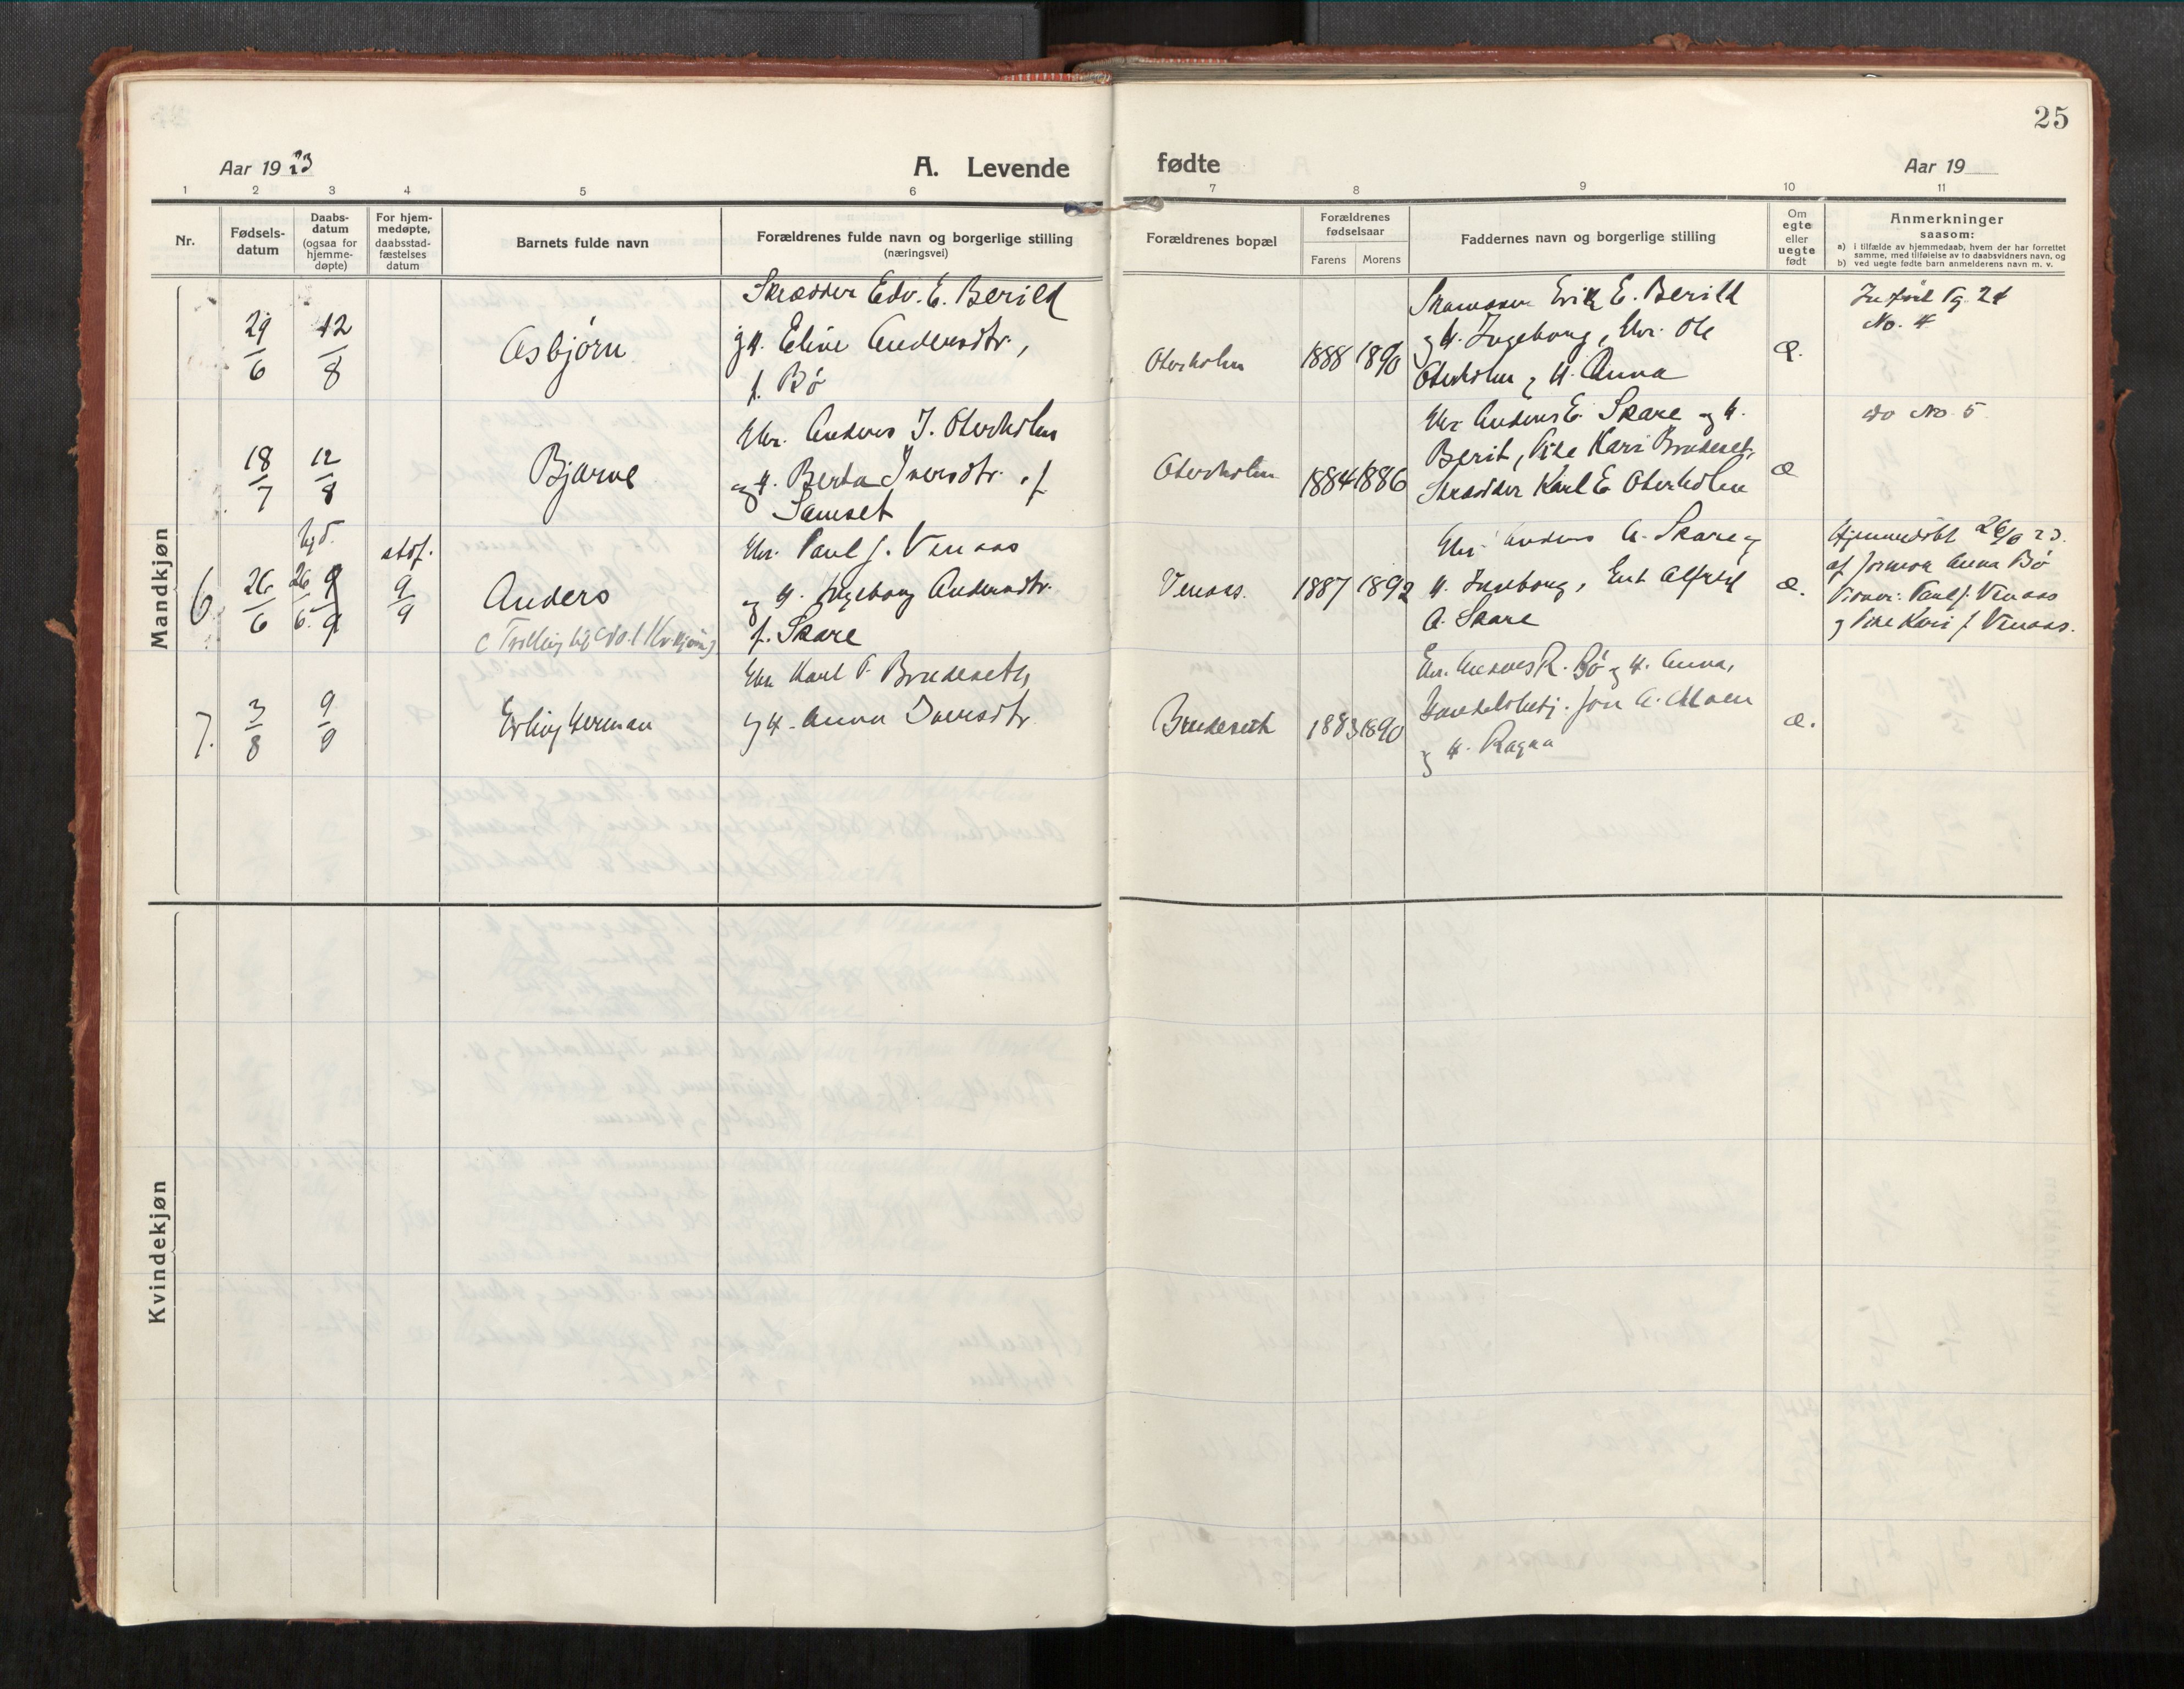 25
Aar 1923
A. Levende
fødte
Aar 19
1 2 3 4 5 6 7 8 9 10 11
Nr.
Fødsels-
datum
Daabs-
datum
(ogsaa for
hjemme-
døpte)
For hjem-
medøpte,
daabsstad-
fæstelses
datum
Barnets fulde navn
Forældrenes fulde navn og borgerlige stilling
(næringsvei)
Forældrenes bopæl
Forældrenes
fødselsaar
Farens Morens
Faddernes navn og borgerlige stilling
Om
egte
eller
uegte
født
Anmerkninger
saasom:
a) i tilfælde av hjemmedaab, hvem der har forrettet
samme, med tilføielse av to daabsvidners navn, og
b) ved uegte fødte barn anmelderens navn m. v.
Mandkjøn
29/6 12/8
Asbjørn
Skrædder Edv. E. Berild
g H. Eline Andersdtr.,
f. Bø
Oterholm
1888 1890
Erik E. Berild
og H. Ingeborg, Ole
Oterholm g H. Anna
æ.
Indført Pg. 24
No. 4
18/7 12/8
Bjarne
Gbr. Anders J. Oterholm
og H. Berta Iversdtr. f
Samset
Oterholm
1884 1886
Gbr Anders E. Skare og H.
Berit, Pike Kari Brudeset,
Skrædder Karl E. Oterholm
æ
do No. 5
6.
26/6
hjd.
26/6. 9/9
stdf.
9/9
Anders
(Tvilling No. 1 Kvkjøn)
Gbr. Paul J. Venaas
og H. Ingeborg Andersdtr.
f. Skare
Venaas.
1887 1892
Gbr. Anders A. Skare g
H. Ingeborg, Alfred
A. Skare
æ.
Hjemmedøbt 26/6 23.
af Jormoa Anna Bø
Vidner: Paul J. Venaas
g Pike Kari J. Venaas.
7.
3/8 9/9
Erling Herman
Gbr Karl P. Brudeseth
g H. Anna Iversdtr.
Brudeseth
1883 1890
Gbr. Anders R. Bø g H. Anna,
Handelsbetj. Jon A. Moen
g H. Ragna
æ.
Kvindekjøn